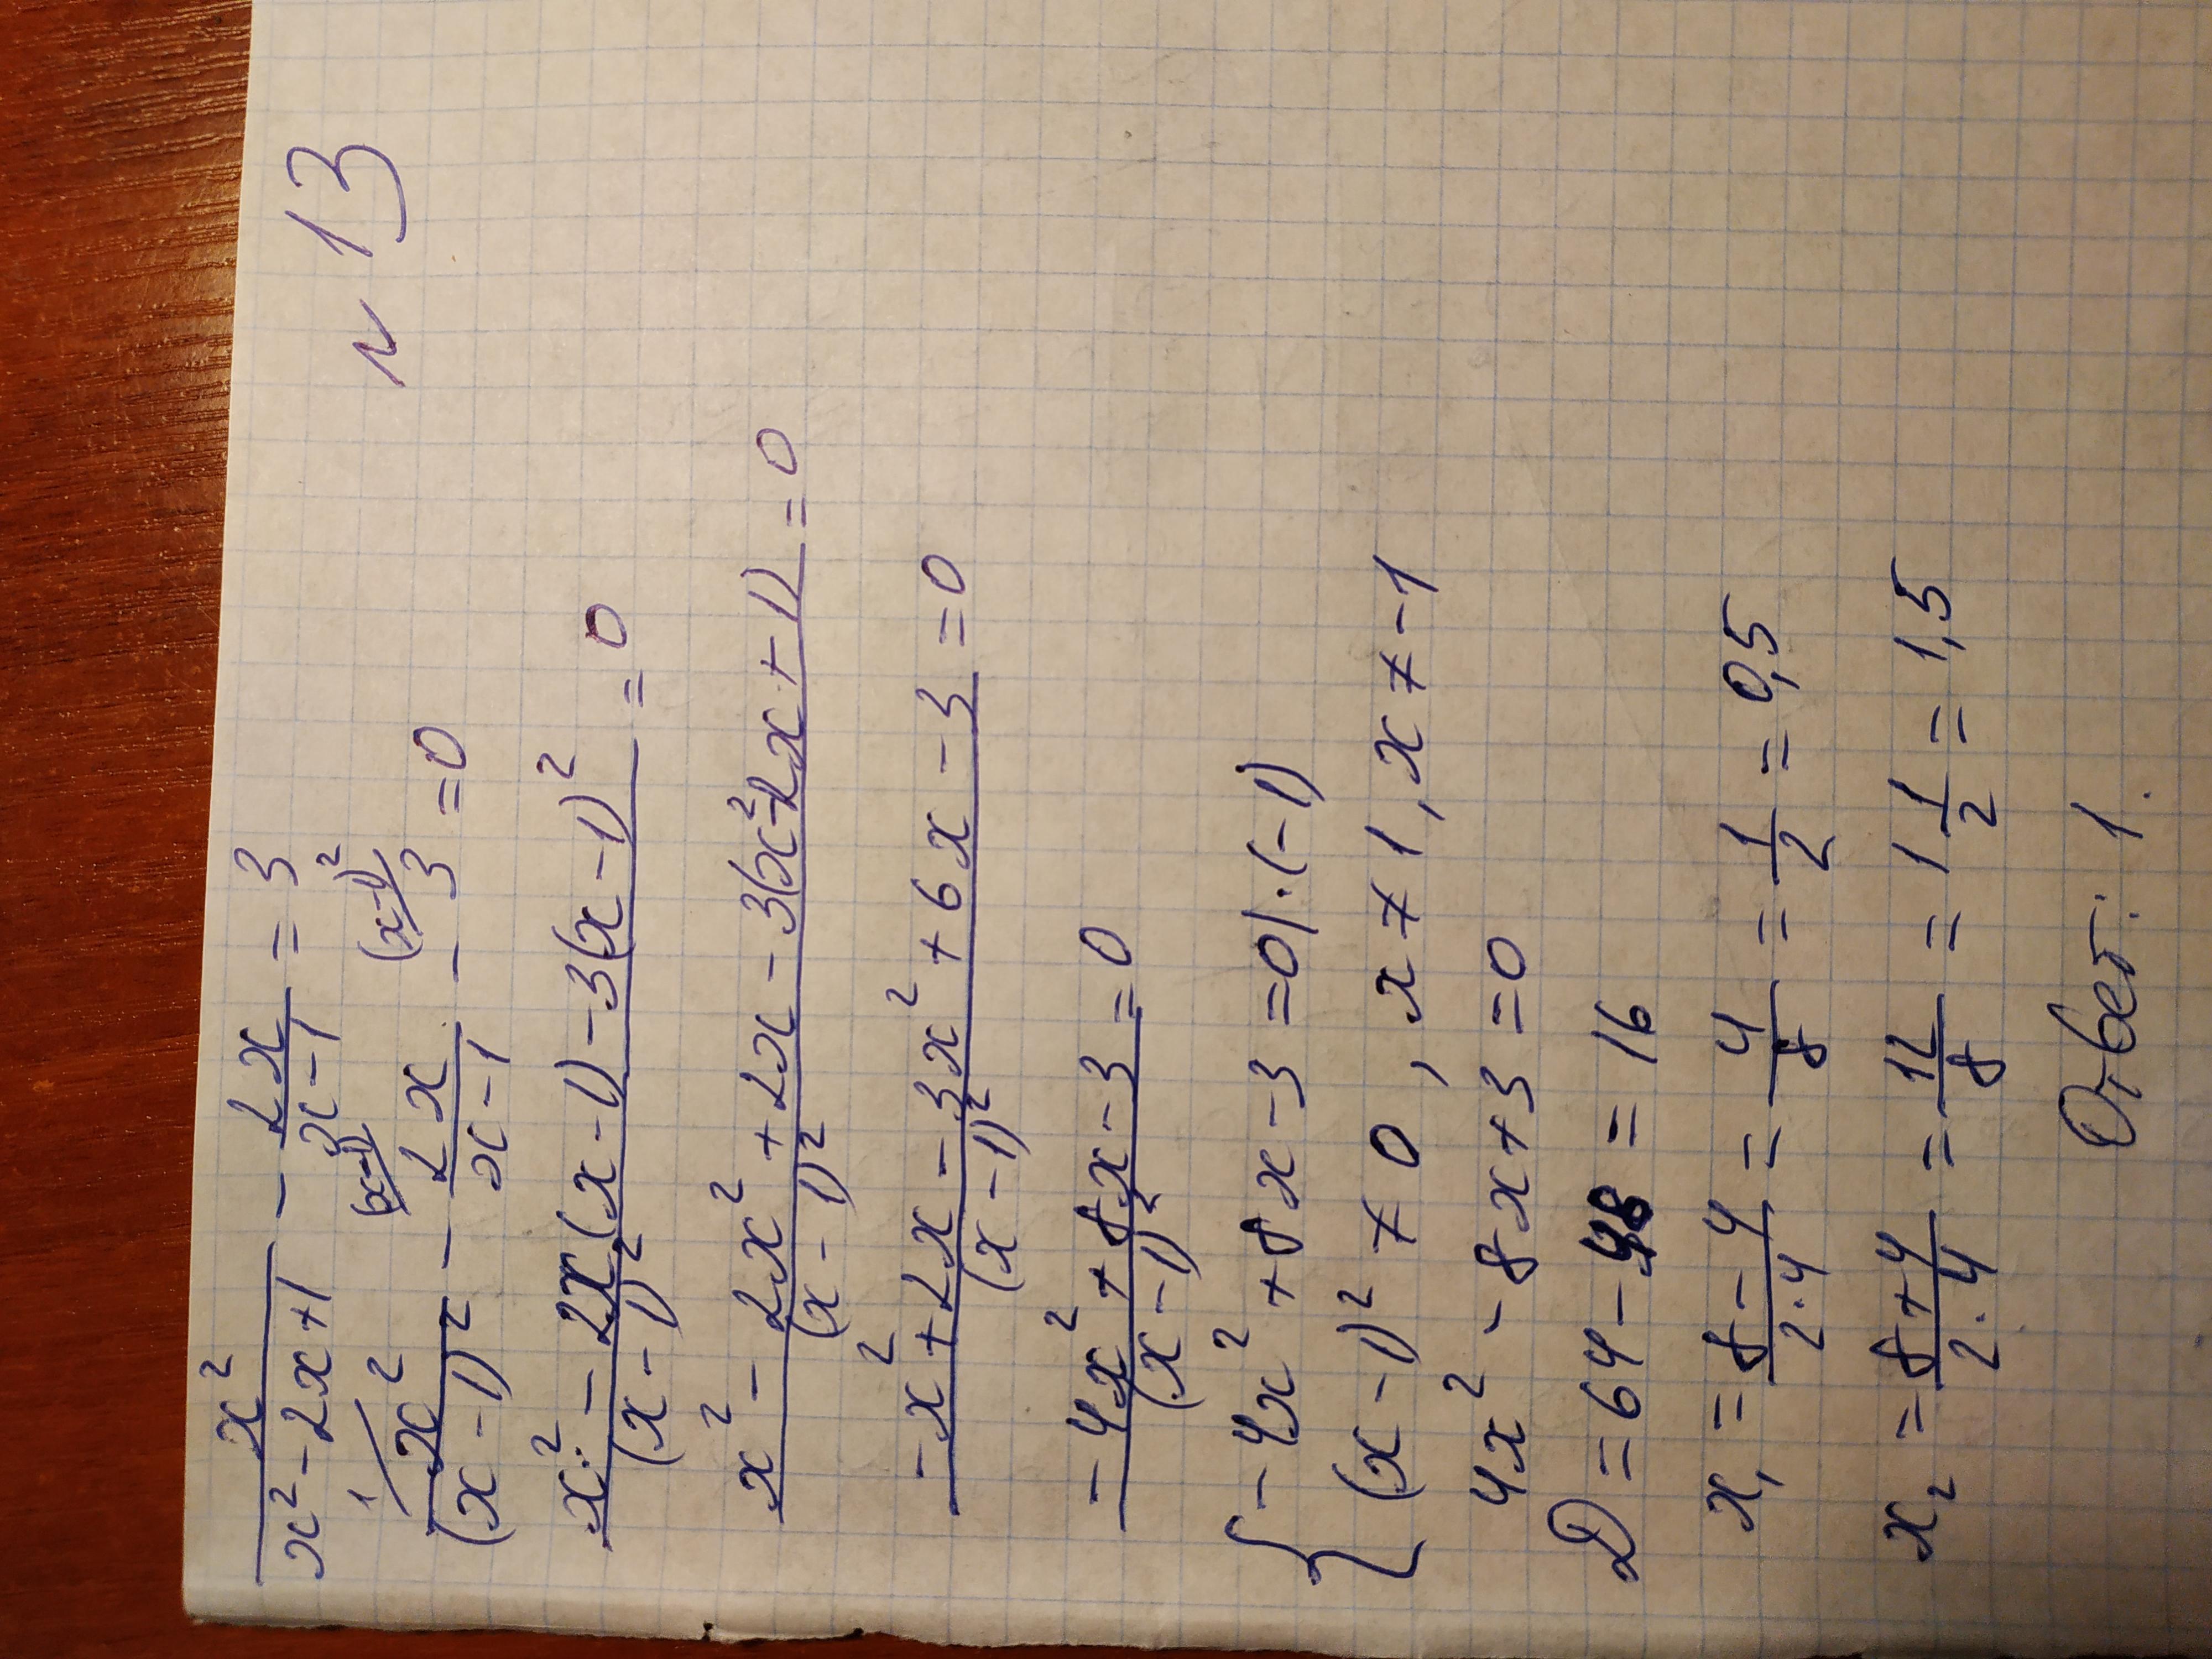 № 13
x²/(x²-2x+1) - 2x/(x-1) = 3
1/ x²/(x-1)² - (x-1)/ 2x/(x-1) - (x-1)²/ 3 = 0
(x² - 2x(x-1) - 3(x-1)²)/(x-1)² = 0
(x² - 2x² + 2x - 3(x²-2x+1))/(x-1)² = 0
(-x² + 2x - 3x² + 6x - 3)/(x-1)² = 0
(-4x² + 8x - 3)/(x-1)² = 0
{ -4x² + 8x - 3 = 0 | ·(-1)
(x-1)² ≠ 0, x ≠ 1, x ≠ -1
4x² - 8x + 3 = 0
D = 64 - 48 = 16
x₁ = (8-4)/(2·4) = 4/8 = 1/2 = 0,5
x₂ = (8+4)/(2·4) = 12/8 = 1 1/2 = 1,5
Ответ: 1.